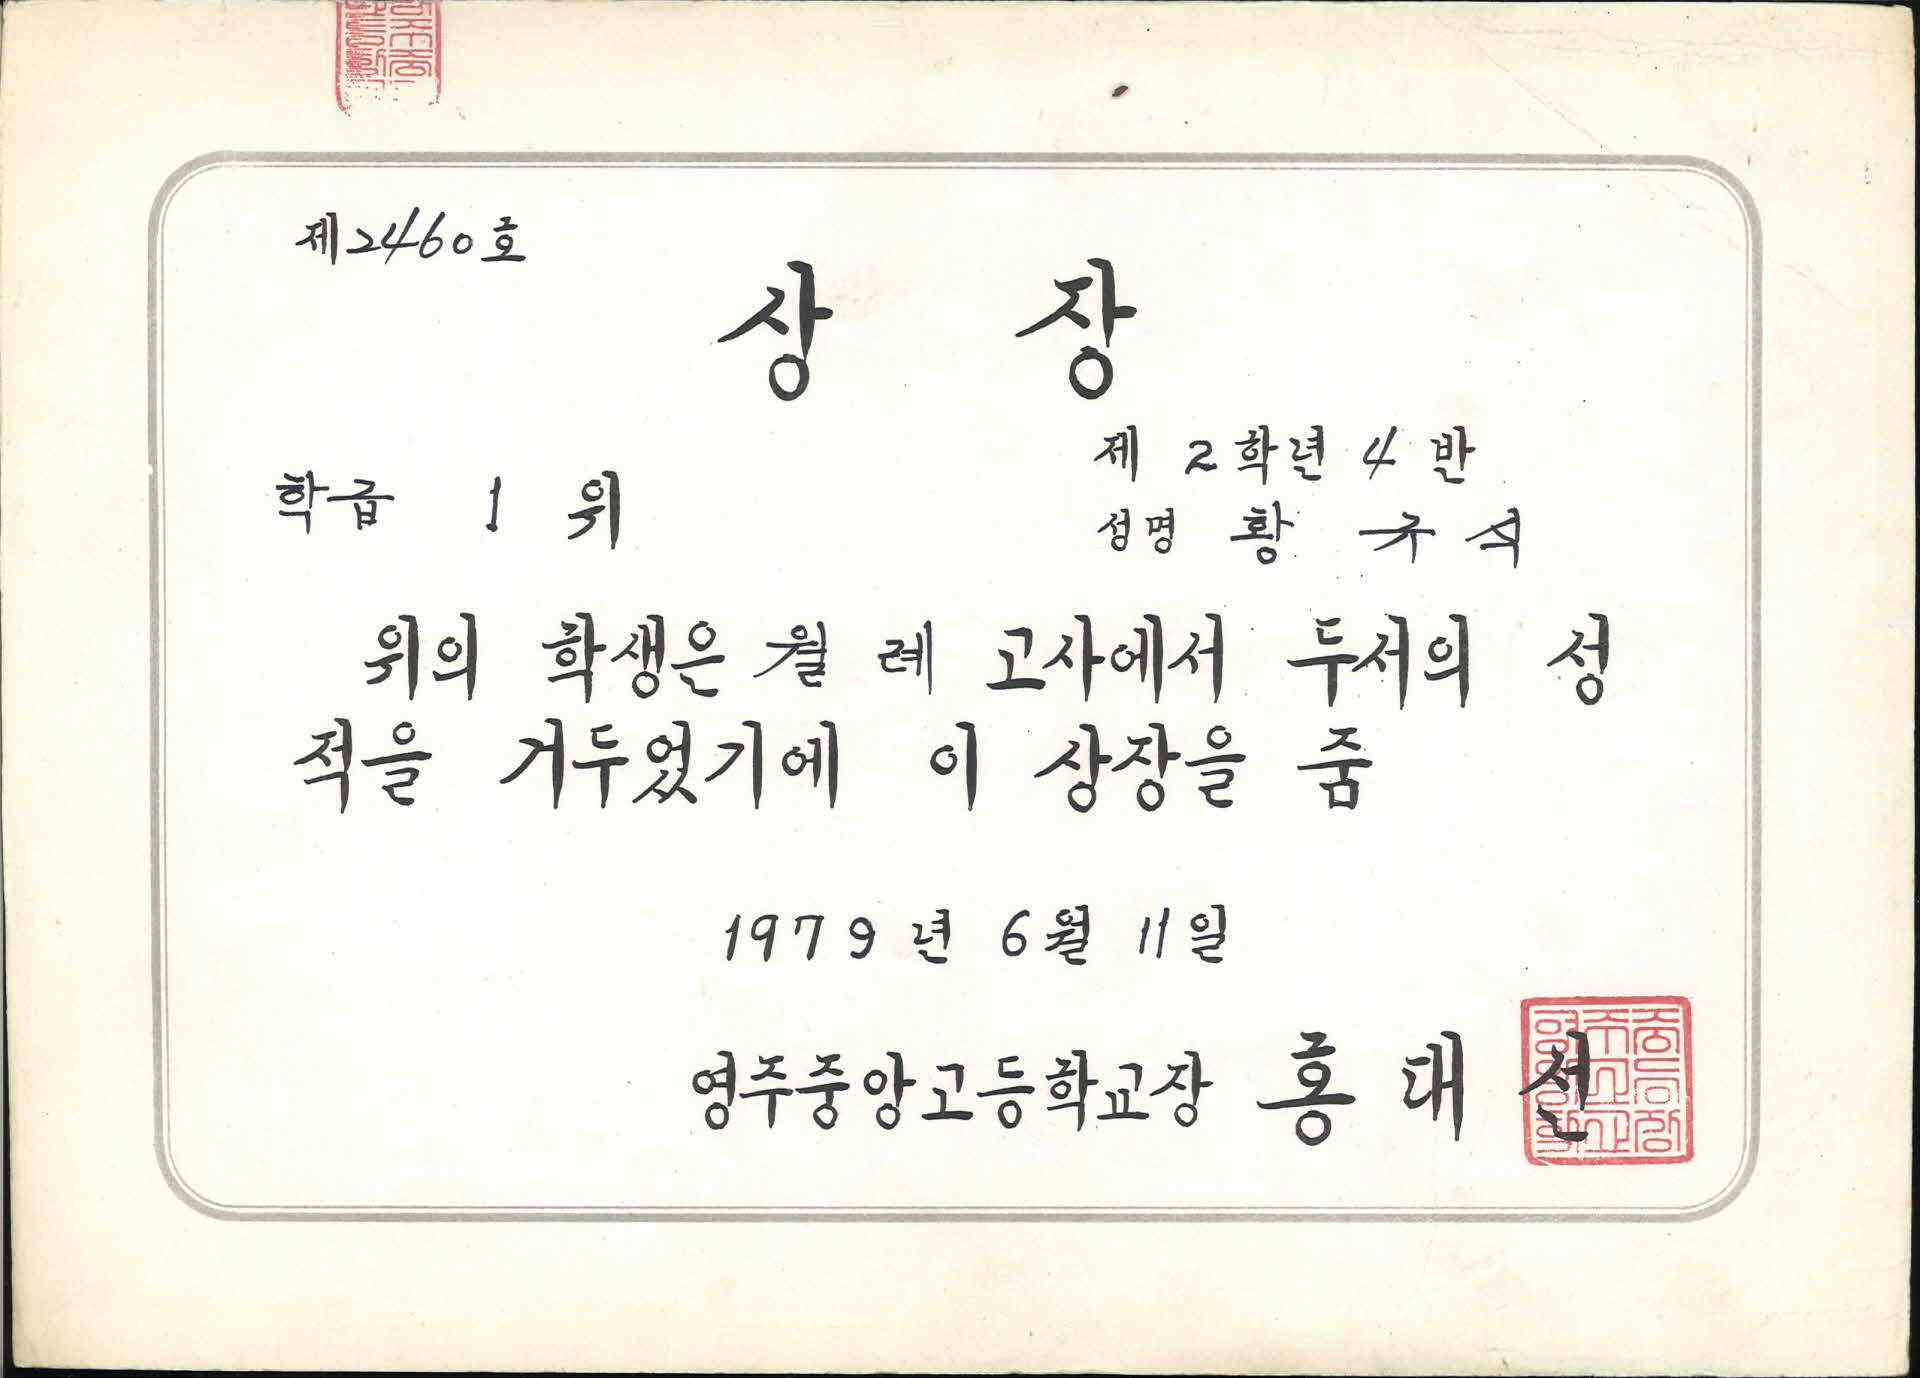 제2460호
상 장
제 2학년 4 반
학급 1 위
성명 황 규 석
위의 학생은 월 례 고사에서 두서의 성
적을 거두었기에 이 상장을 줌
1979년 6월 11일
영주중앙고등학교장 홍 대 선